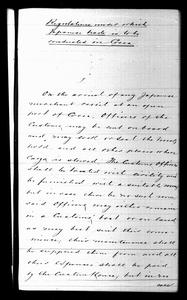 Regulations under which
Japanese trade is to be
conducted in Corea.
I
On the arrival of any Japanese
merchant vessel at an open
port of Corea, Officers of the
Customs may be put on board
and may lock or seal the
hold and all other places where
Cargo is stowed. The Customs Officers
shall be treated with civility and
be furnished with a suitable room,
but in case there be no such room
said Officers may either remain
in a Customs boat or on land
as may best suit their
their maintenance shall
be supplied them from and all
their expenses shall be paid
by the Custom House, but in no
case